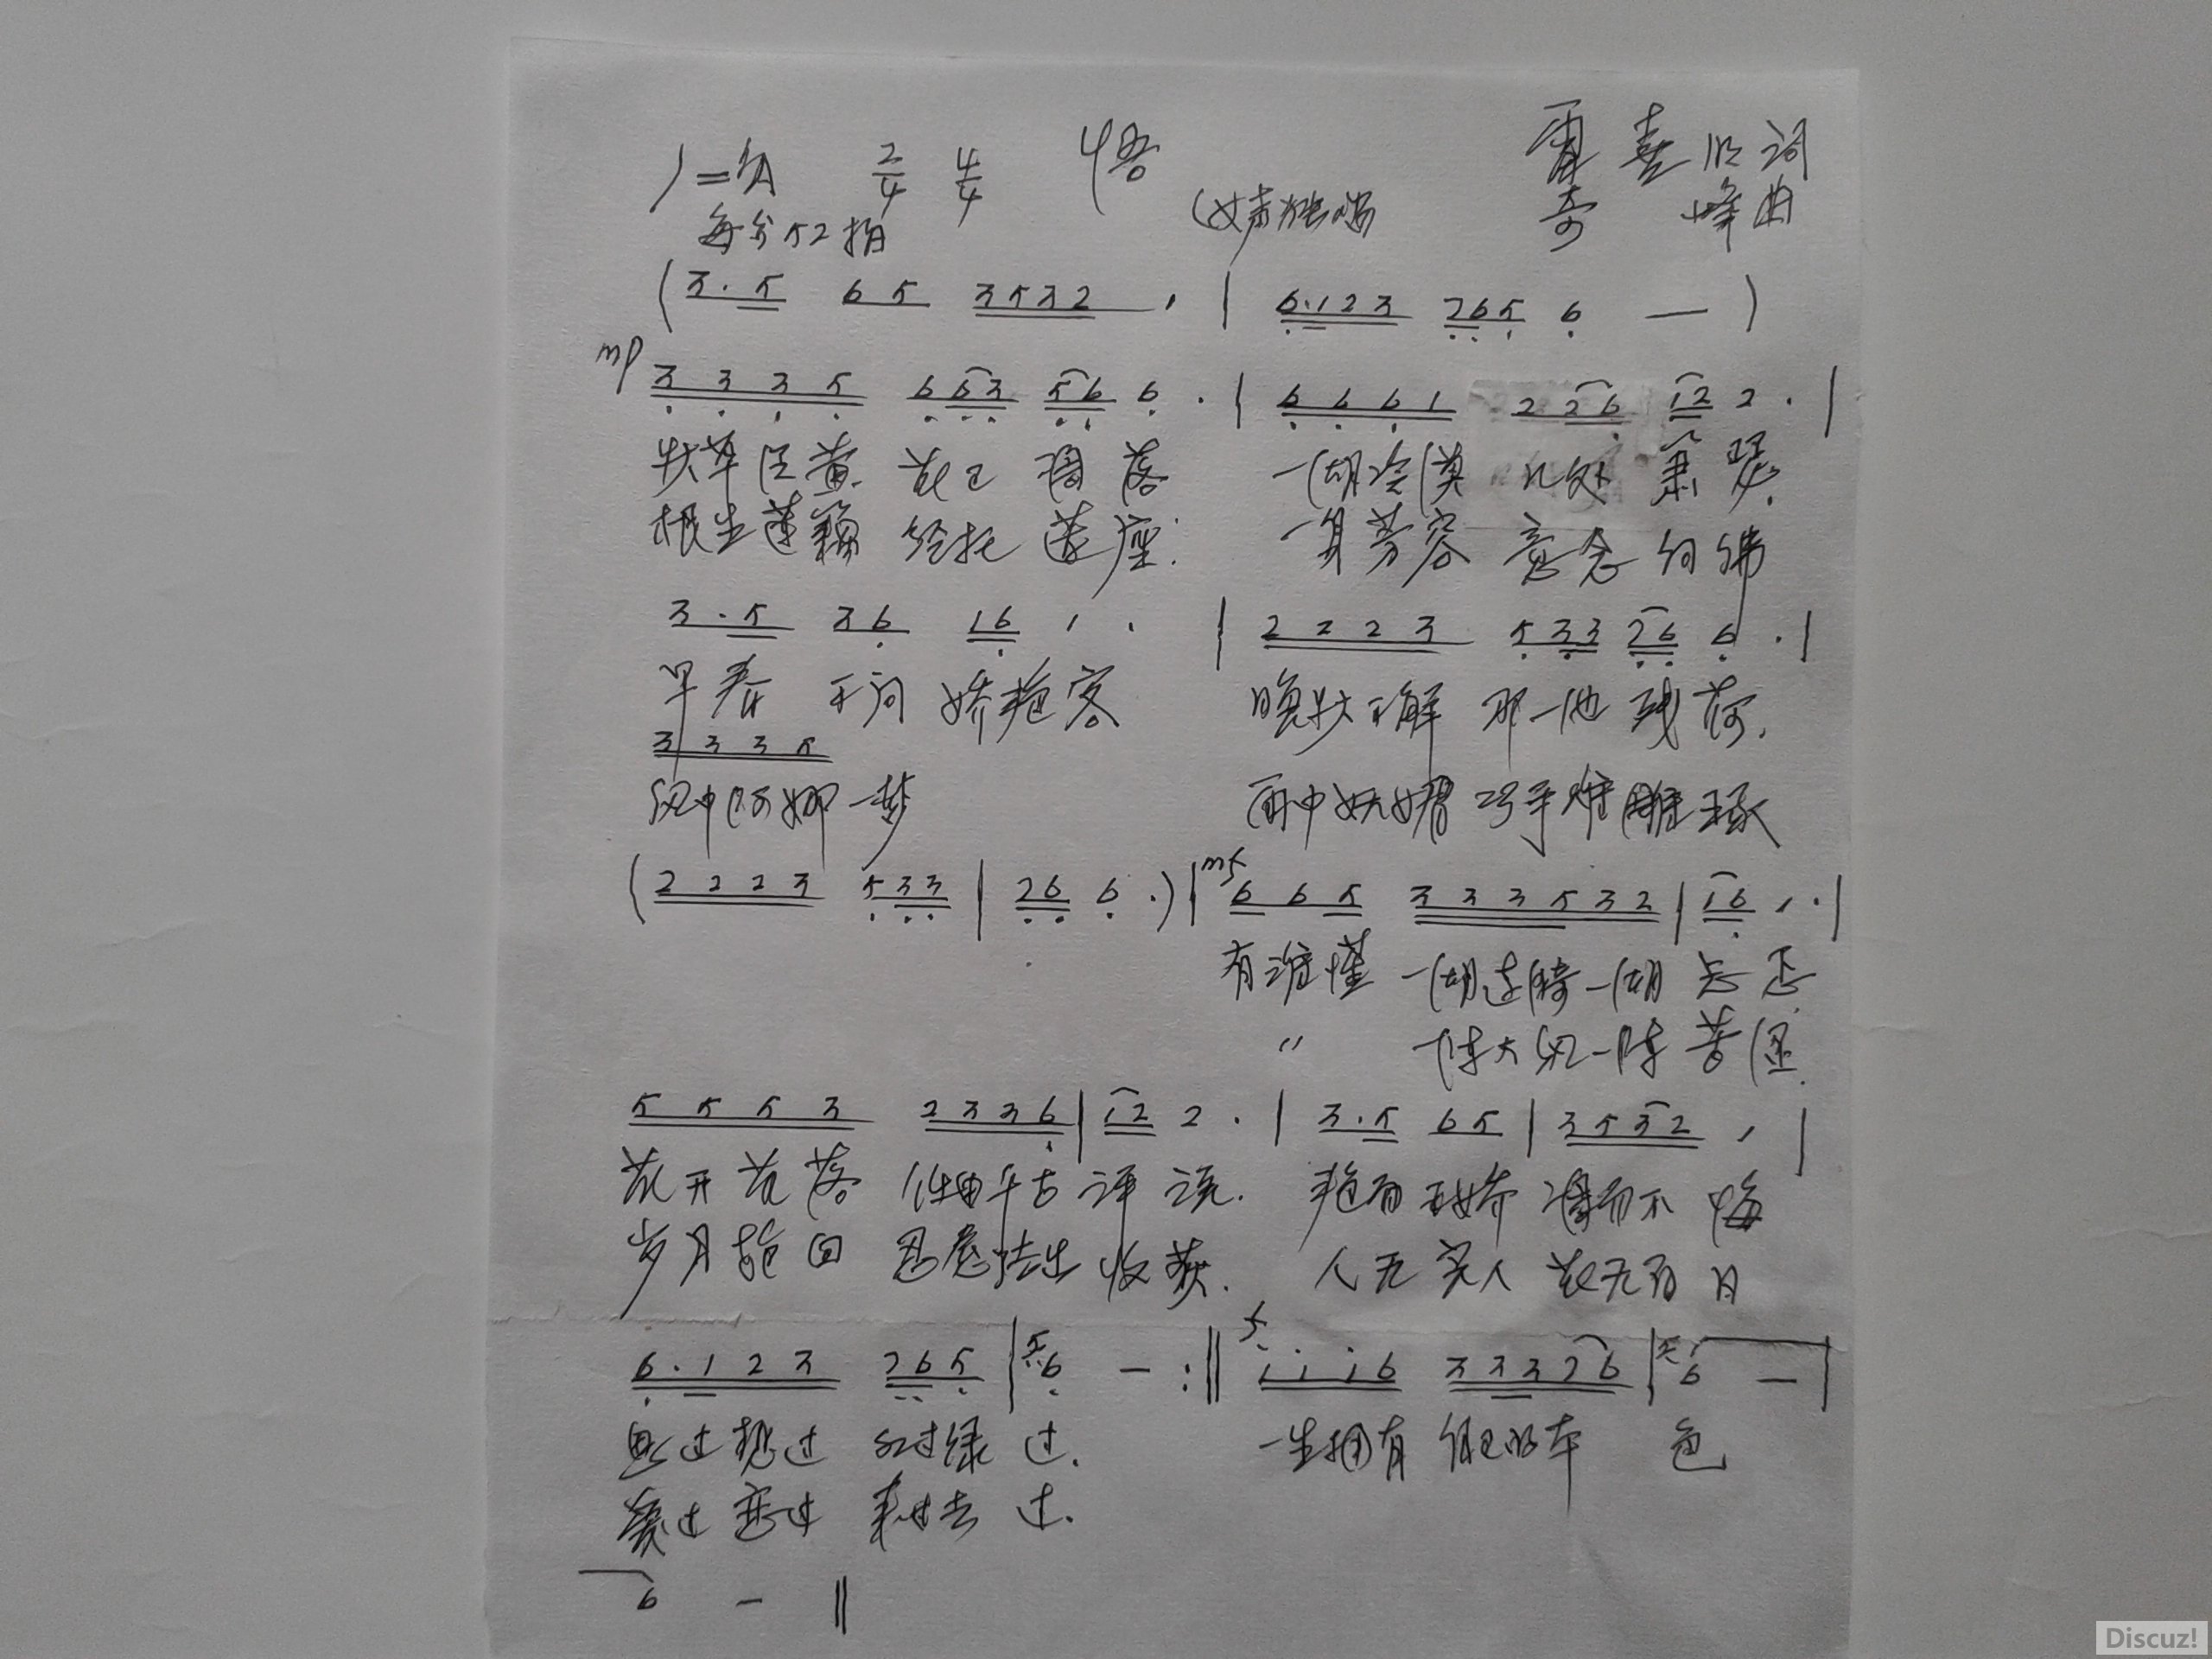 1=A 2/4 4/4 悟 雷喜明词
每分52拍 (女声独唱 奇峰曲
(3·5 65 3532 1 | 6·123 265 6 — )
mp 3335 663 56 6· | 6661 226 12 2· |
秋草泛黄 花已凋落 一湖冷漠 几处萧瑟.
根生莲藕 绽托莲座: 一身芳容 意念向佛
3·5 36 16 1· | 2223 533 26 6· |
早春不问娇艳客 晚秋不解那一池残荷.
3335
风中阿娜一梦 雨中妩媚 巧手难雕琢
(2223 533 | 26 6·) | mf 665 333532 | 16 1· |
有谁懂 一湖涟漪一湖忐忑
" 一阵大风一阵苦涩.
5553 2336 | 12 2· | 3·5 65 | 3532 1 |
花开花落 任由千古评说. 艳而不娇 凋而不悔
岁月轮回 收获. 人无完人 花无百日
6·123 265 | 6 — :‖ f 1116 33326 | 6 — |
过 过 红过绿过. 一生拥有 本色
过恋过 来过去过.
6 — ‖
Discuz!